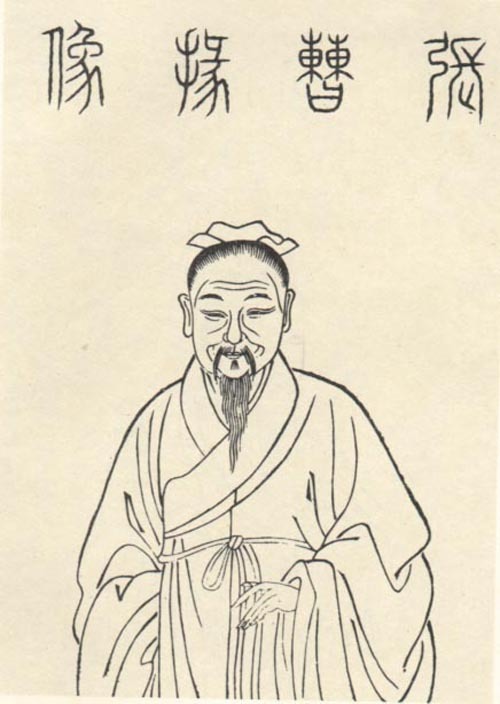 張曹掾像